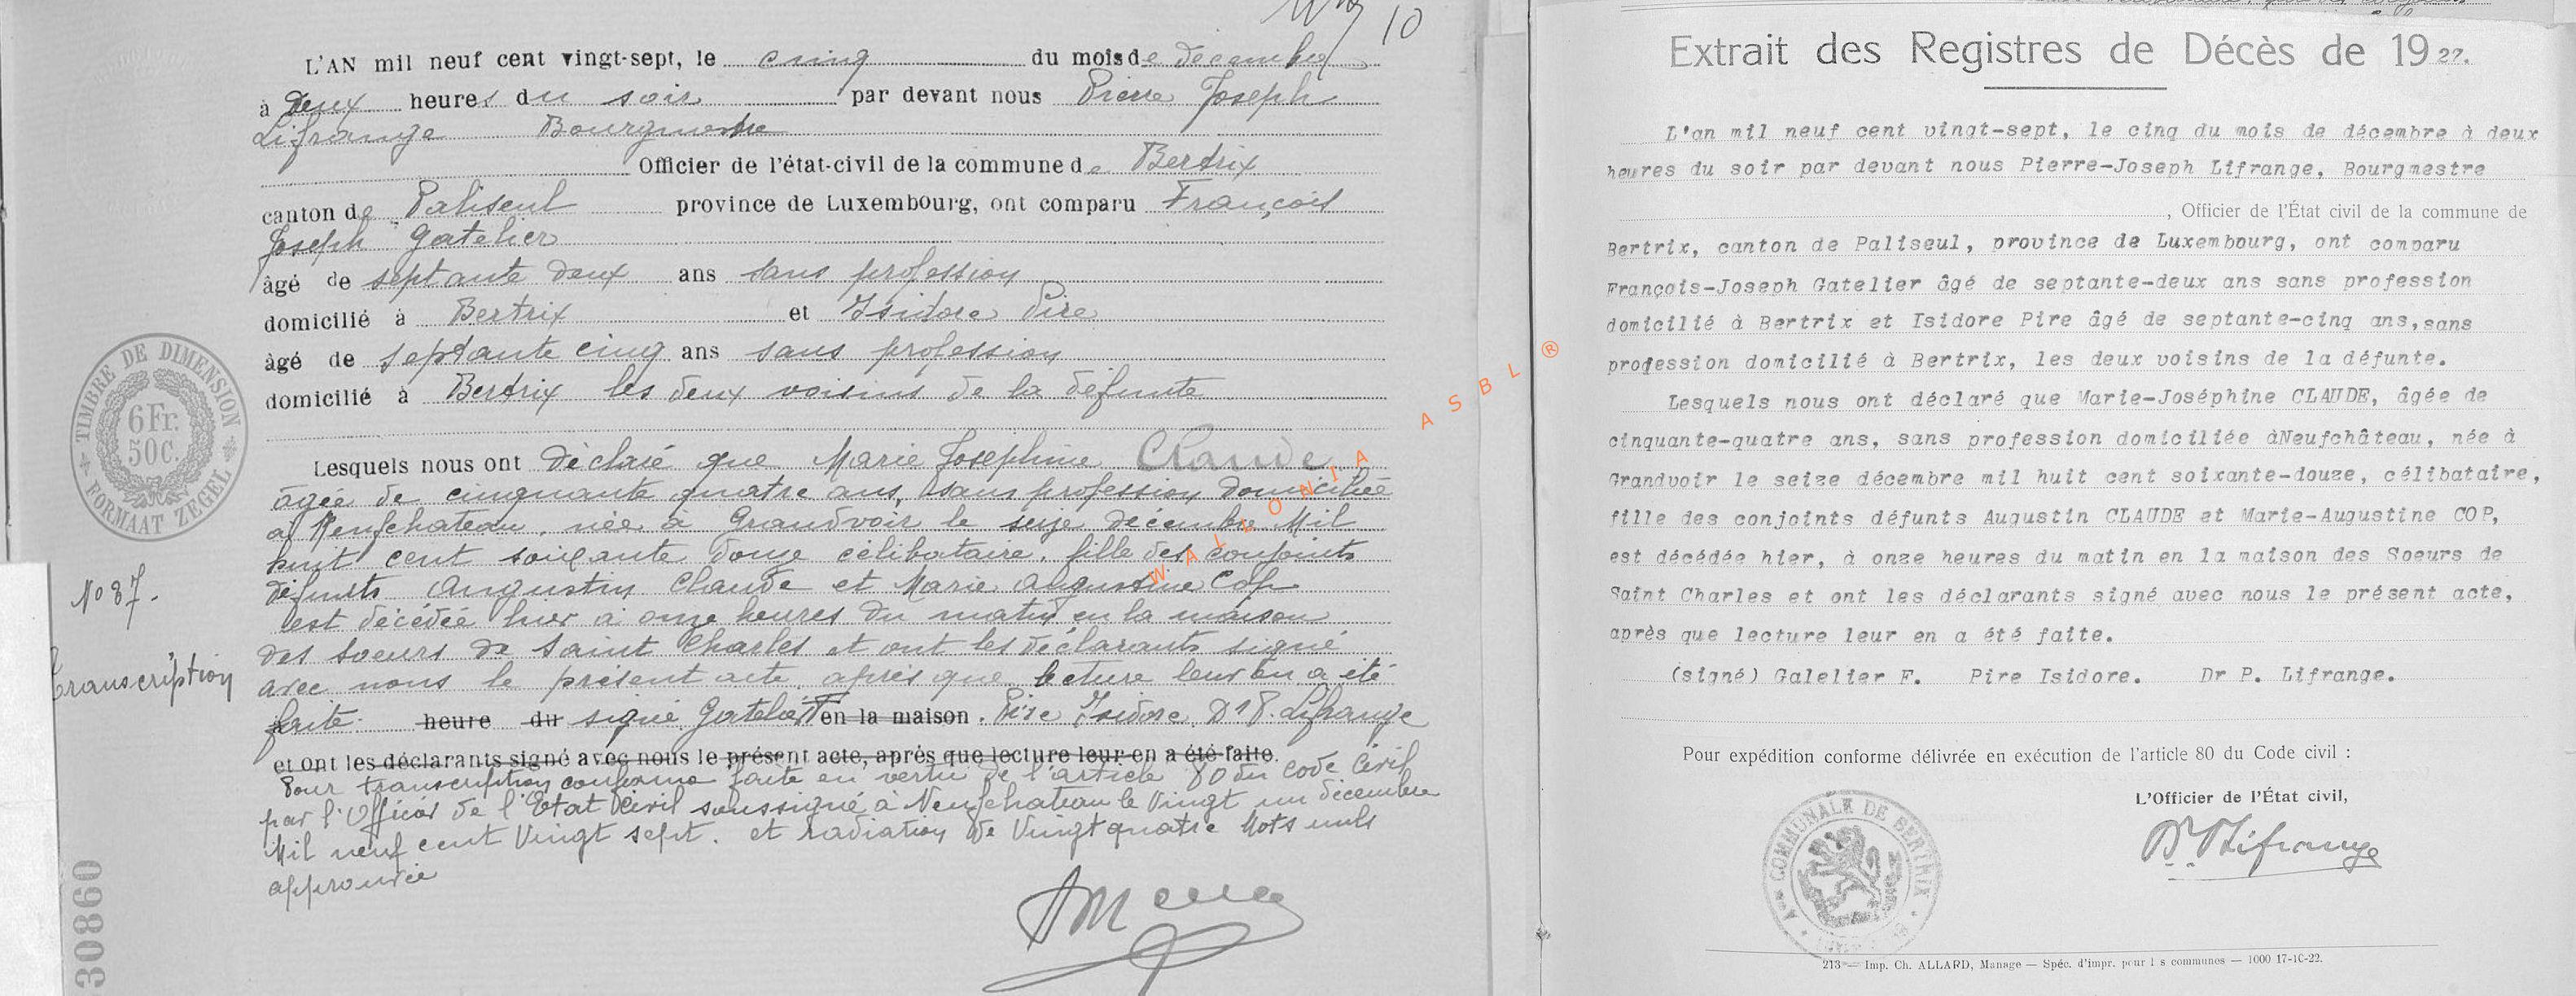 10
L'AN mil neuf cent vingt-sept, le cinq du mois de décembre
à Deux heures du soir par devant nous Pierre Joseph
Lifrange Bourgmestre
Officier de l'état-civil de la commune de Bertrix
canton de Paliseul province de Luxembourg, ont comparu François
Joseph Gatelier
âgé de septante deux ans sans profession
domicilié à Bertrix et Isidore Pire
âgé de septante cinq ans sans profession
domicilié à Bertrix les deux voisins de la défunte
Lesquels nous ont déclaré que Marie Josephine Claude
âgée de cinquante quatre ans, sans profession domiciliée
à Neufchateau, née à Grandvoir le seize décembre Mil
huit cent soixante douze célibataire, fille des conjoints
défunts Augustin Claude et Marie Augustine Cop
est décédée hier à onze heures du matin en la maison
des soeurs de Saint Charles et ont les déclarants signé
avec nous le présent acte après que lecture leur en a été
faite. heure du signé Gatelier F en la maison. Pire Isidore, Dr P. Lifrange
et ont les déclarants signé avec nous le présent acte, après que lecture leur en a été faite.
Pour transcription conforme faite en vertu de l'article 80 du Code Civil
par l'Officier de l'Etat Civil soussigné à Neufchateau le Vingt un décembre
Mil neuf cent Vingt sept. et radiation de Vingt quatre Mots nuls
approuvée
TIMBRE DE DIMENSION
6 Fr.
50 C.
FORMAAT ZEGEL
No 87.
Transcription
30860
WALLONIA ASBL ®
Extrait des Registres de Décès de 1927.
L'an mil neuf cent vingt-sept, le cinq du mois de décembre à deux
heures du soir par devant nous Pierre-Joseph Lifrange, Bourgmestre
, Officier de l'État civil de la commune de
Bertrix, canton de Paliseul, province de Luxembourg, ont comparu
François-Joseph Gatelier âgé de septante-deux ans sans profession
domicilié à Bertrix et Isidore Pire âgé de septante-cinq ans, sans
profession domicilié à Bertrix, les deux voisins de la défunte.
Lesquels nous ont déclaré que Marie-Joséphine CLAUDE, âgée de
cinquante-quatre ans, sans profession domiciliée àNeufchâteau, née à
Grandvoir le seize décembre mil huit cent soixante-douze, célibataire,
fille des conjoints défunts Augustin CLAUDE et Marie-Augustine COP,
est décédée hier, à onze heures du matin en la maison des Soeurs de
Saint Charles et ont les déclarants signé avec nous le présent acte,
après que lecture leur en a été faite.
(signé) Galelier F. Pire Isidore. Dr P. Lifrange.
Pour expédition conforme délivrée en exécution de l'article 80 du Code civil :
L'Officier de l'État civil,
Dr P Lifrange
Aon COMMUNALE DE BERTRIX
213 — Imp. Ch. ALLARD, Manage — Spéc. d'impr. pour l s communes — 1000 17-10-22.